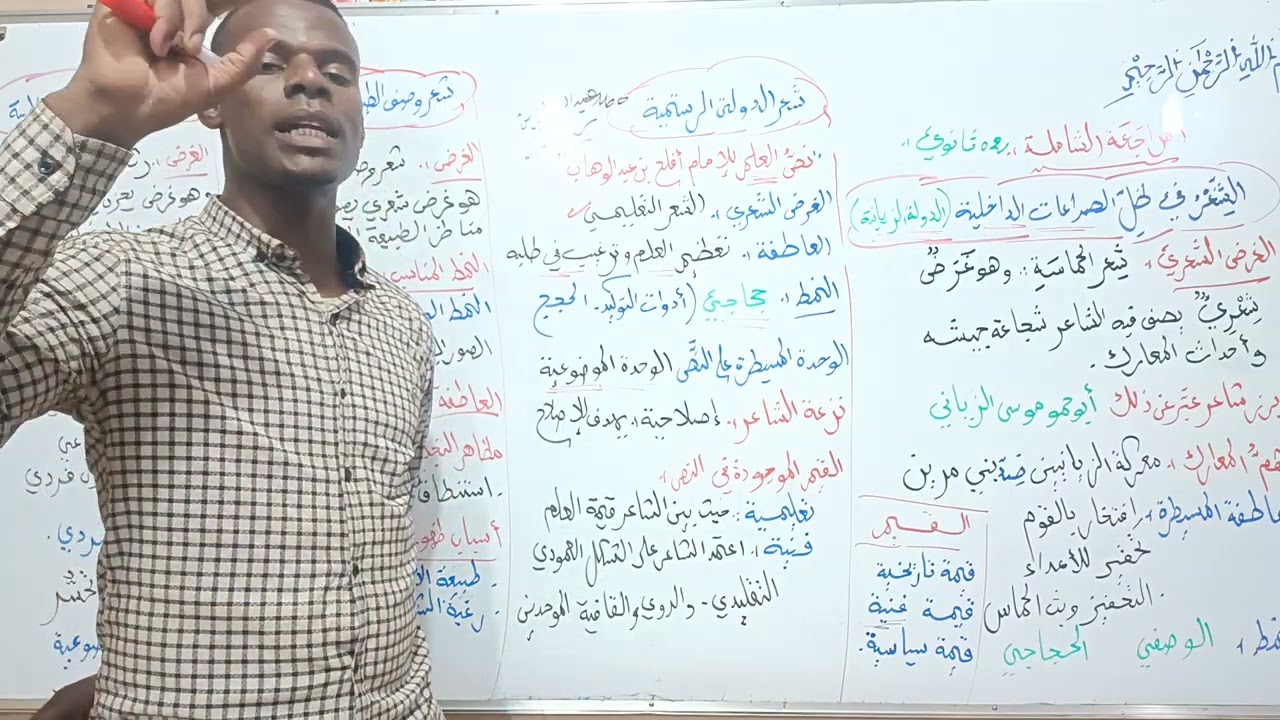 الله الرَّحْمَٰن الرَّحِيْمِ
المراجَعَة الشاملة: 02 ثانوي:
الشِّعْرُ في ظلِّ الصراعات الداخلية (الدولة الزيانية)
الغرض الشعري: شعر الحماسَةِ: وهو غَرَضٌ
شِعْرِيٌّ يصف فيه الشاعر شجاعة جيشه
وأحداث المعارك.
شاعر عبّر عن ذلك أبو حمو موسى الزياني
المعارك: معركة الزيانيين ضد بني مرين
المسيطرة: افتخار بالقوم
تحفيز للأعداء
التحفيز وبث الحماس
الوصفي الحجاجي
القيم
قيمة تاريخية
قيمة فنية
قيمة سياسية.
شعر الدولة الرستمية
"نصُّ العلم للإمام أفلح بن عبد الوهاب"
الغرض الشعري: الشعر التعليمي
العاطفة: تعظيم العلم وترغيب في طلبه
النمط: حجاجي (أدوات التوكيد - الحجج
الوحدة المسيطرة على النصّ الوحدة الموضوعية
نزعة الشاعر: إصلاحية: يهدف الإصلاح
القيم الموجودة في النص:
تعليمية: حيث بين الشاعر قيمة العلم
فنية: اعتمد الشاعر على الشكل العمودي
التقليدي - والروي والقافية الموحدين
شعر وصف
الغرض: شعر
هو غرض شعري
مناظر الطبيعة
النمط المناسب
النمط
الصور
العاطفة
مظاهر
أسباب
طبيعة
رغبة
الغرض:
وهو غرض
فردي